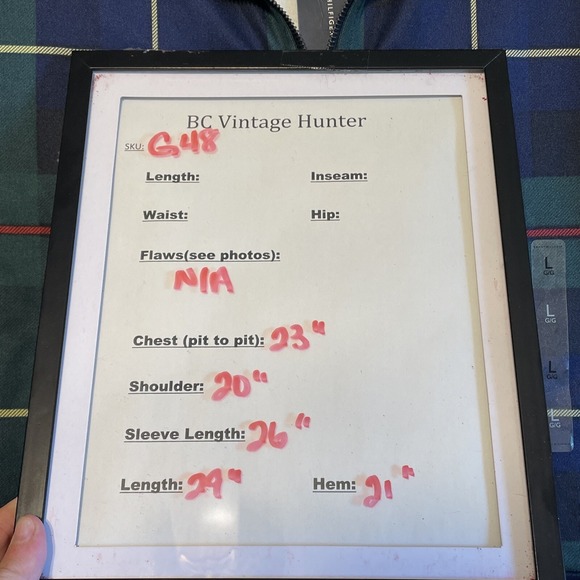 BC Vintage Hunter
SKU: G48
Length: Inseam:
Waist: Hip:
Flaws(see photos):
N/A
Chest (pit to pit): 23"
Shoulder: 20"
Sleeve Length: 26"
Length: 29" Hem: 21"
L
G/G
L
G/G
L
G/G
L
G/G